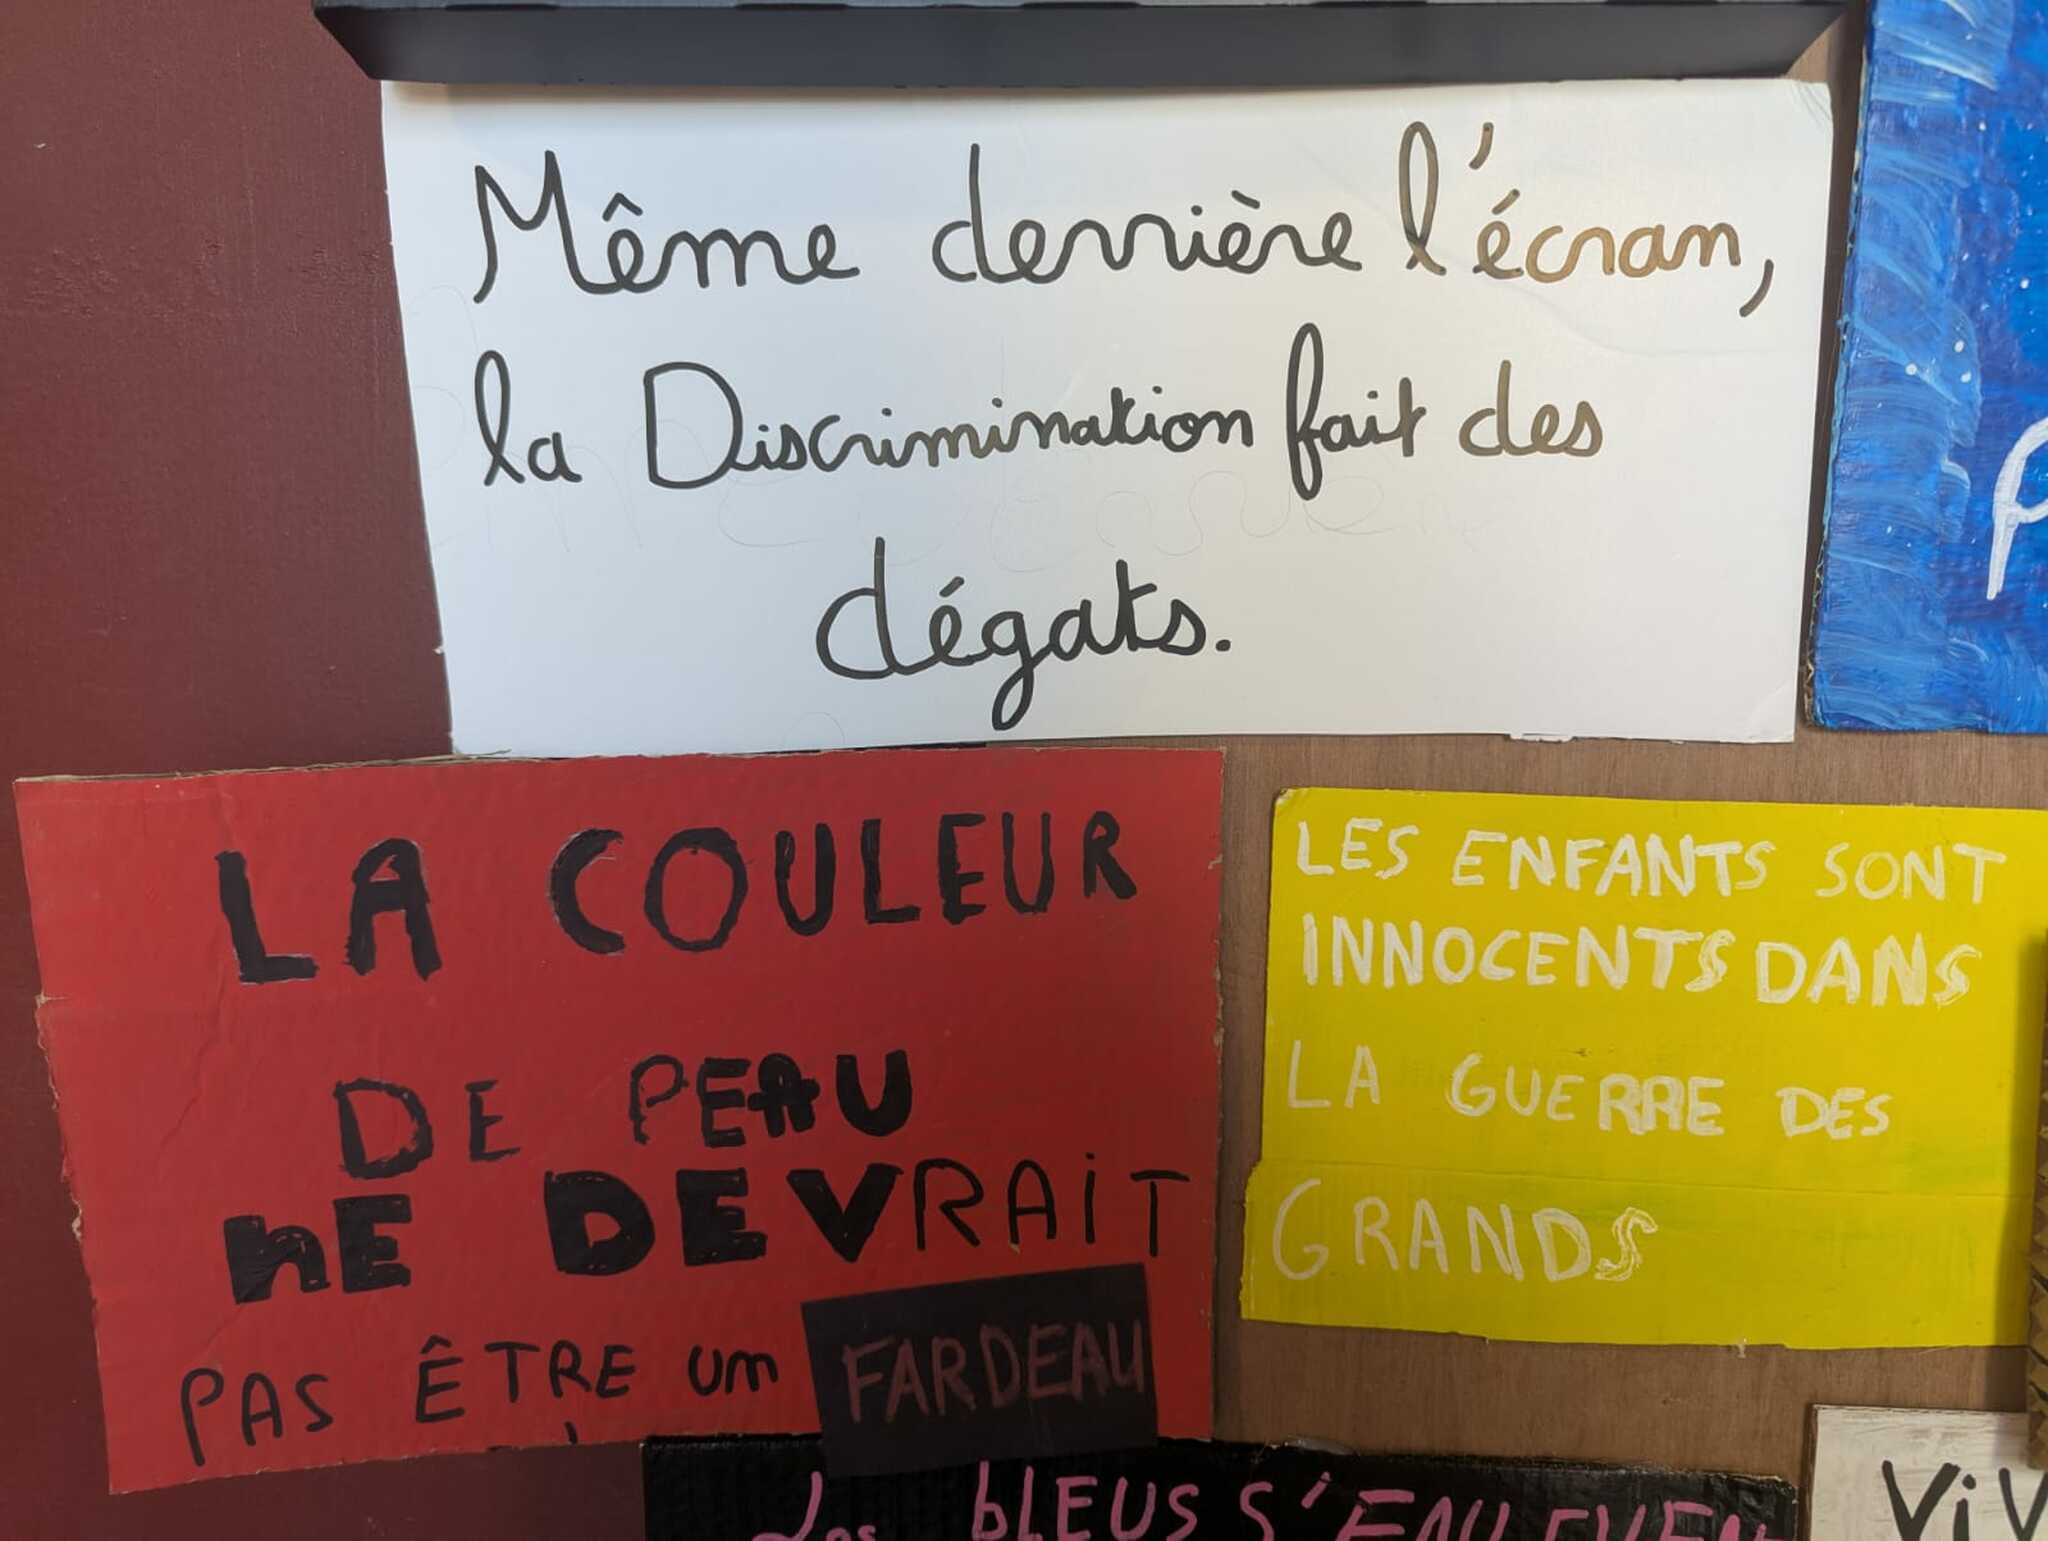 Même derrière l'écran,
la Discrimination fait des
dégats.
LA COULEUR
DE PEAU
nE DEVRAiT
PAS ÊTRE Um FARDEAU
LES ENFANTS SONT
INNOCENTS DANS
LA GUERRE DES
GRANDS
Les bLEUS S'ENLEVEN
ViV